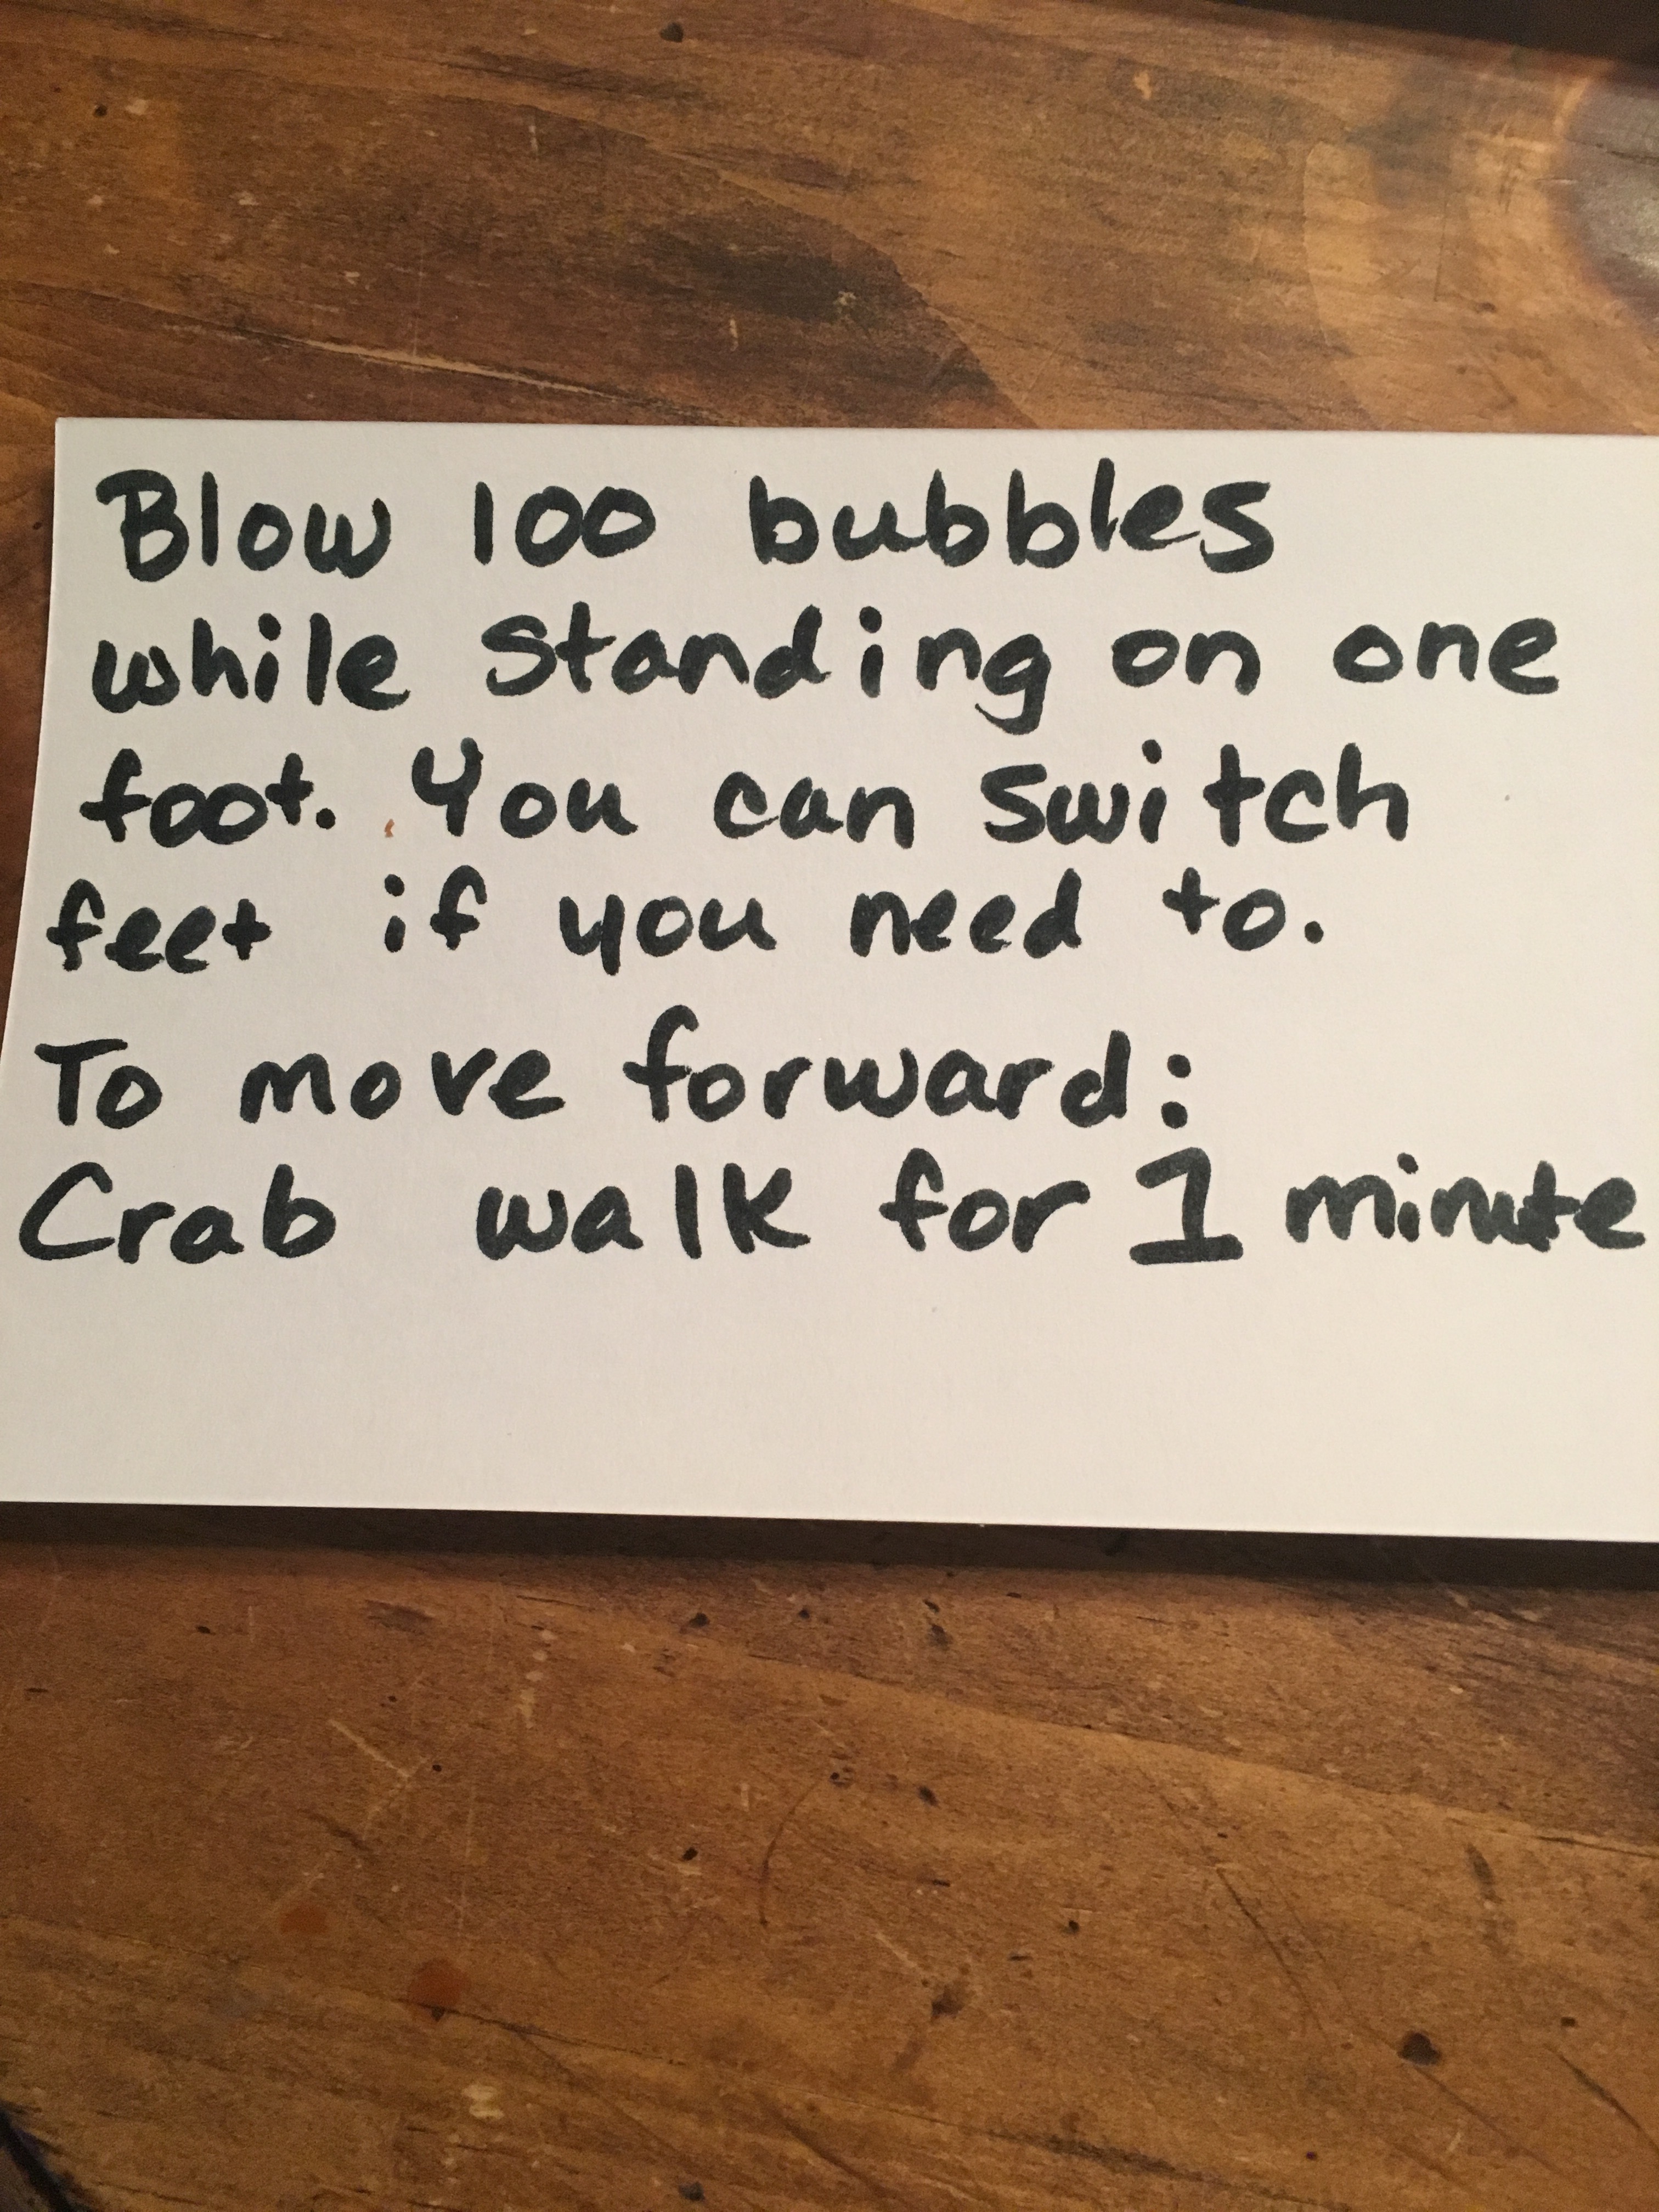 Blow 100 bubbles
while standing on one
foot. You can switch
feet if you need to.
To move forward:
Crab walk for 1 minute